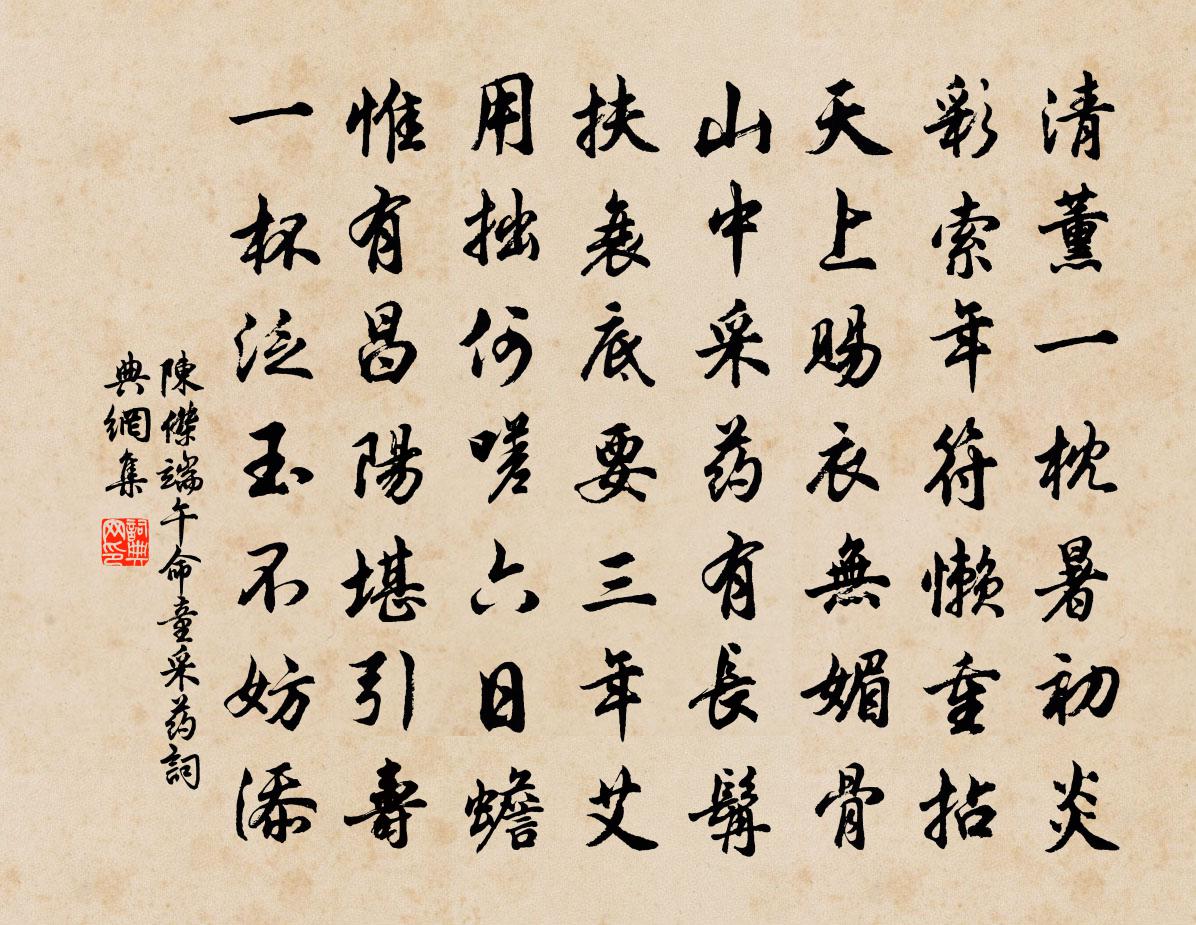 清薰一枕暑初炎
彩索年符懒重拈
天上賜衣無媚骨
山中采药有長髯
扶衰底要三年艾
用拙何嗟六日蟾
惟有昌陽堪引壽
一杯泛玉不妨添
陳傑端午命童采药詞
典網集
詞典
网印